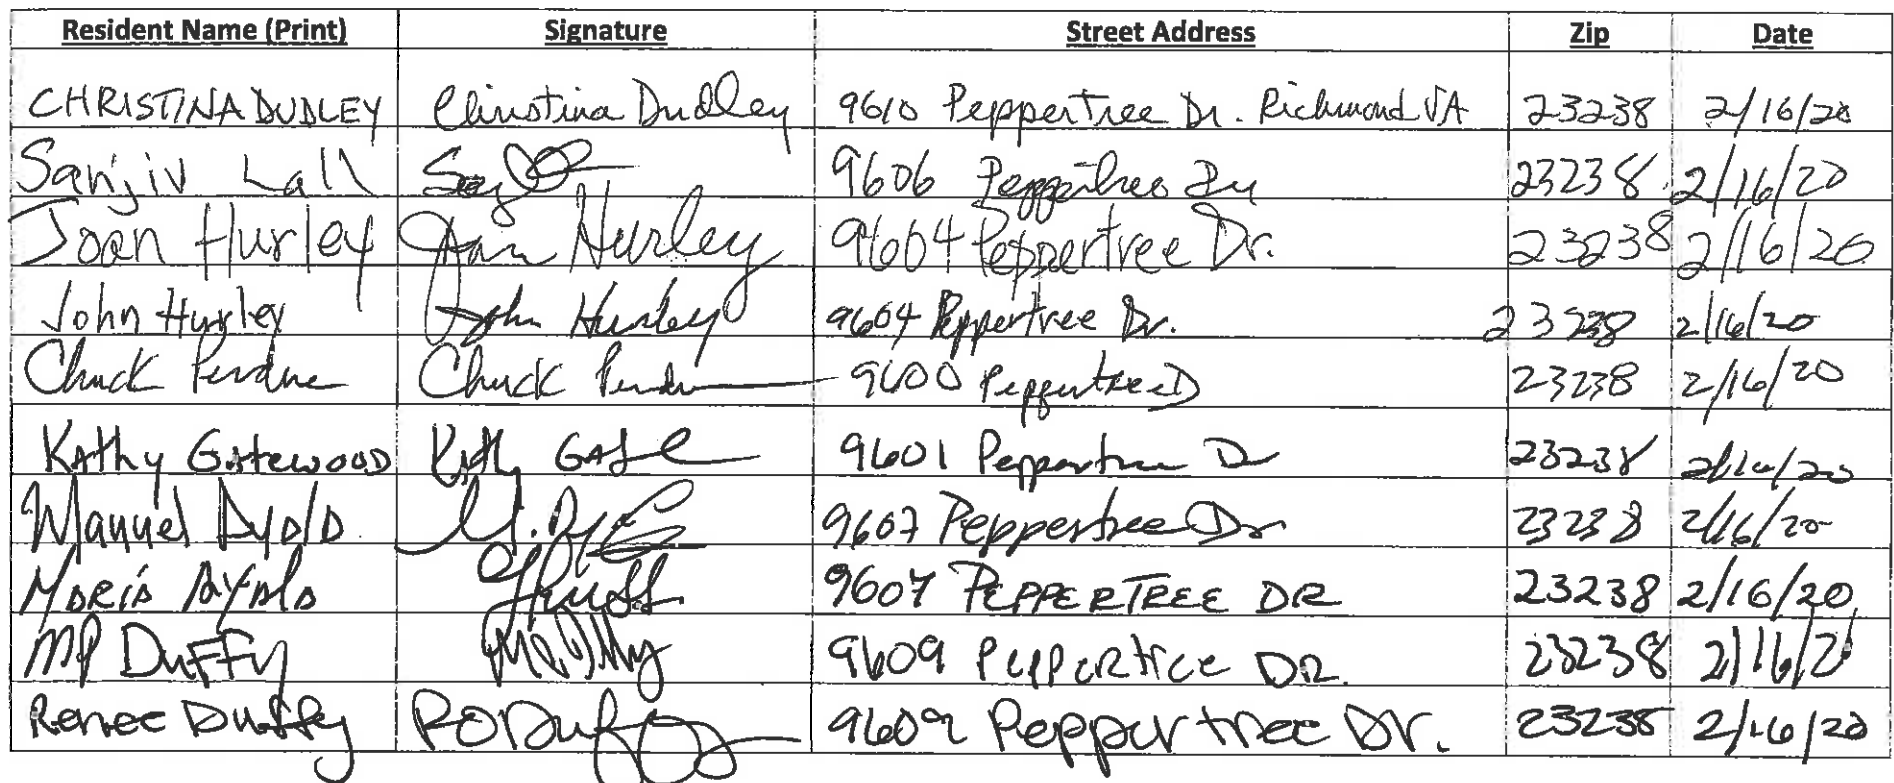 Resident Name (Print) Signature Street Address Zip Date
CHRISTINA DUDLEY Christina Dudley 9610 Peppertree Dr. Richmond VA 23238 2/16/20
Sanjiv Lall 9606 Peppertree Dr 23238 2/16/20
Joan Hurley Joan Hurley 9604 Peppertree Dr. 23238 2/16/20
John Hurley John Hurley 9604 Peppertree Dr. 23238 2/16/20
Chuck Perdue Chuck Perdue 9600 Peppertree D 23238 2/16/20
Kathy Gatewood Kathy 9601 Peppertree D 23238 2/16/20
Manuel Ayala 9607 Peppertree Dr 23238 2/16/20
María Ayala 9607 PEPPERTREE DR 23238 2/16/20
MP Duffy 9609 Peppertree DR. 23238
Renee Duffy RDDuffy 9609 Peppertree Dr. 23238 2/16/20